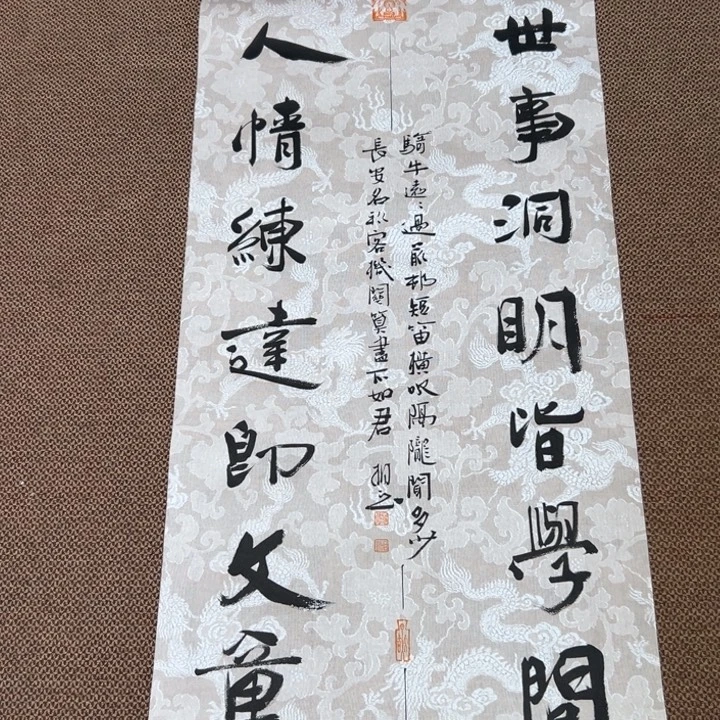 世事洞明皆學問
騎牛遠〻過前邨短笛橫吹隔隴聞多少
長安名利客機關算盡不如君
人情練達即文章